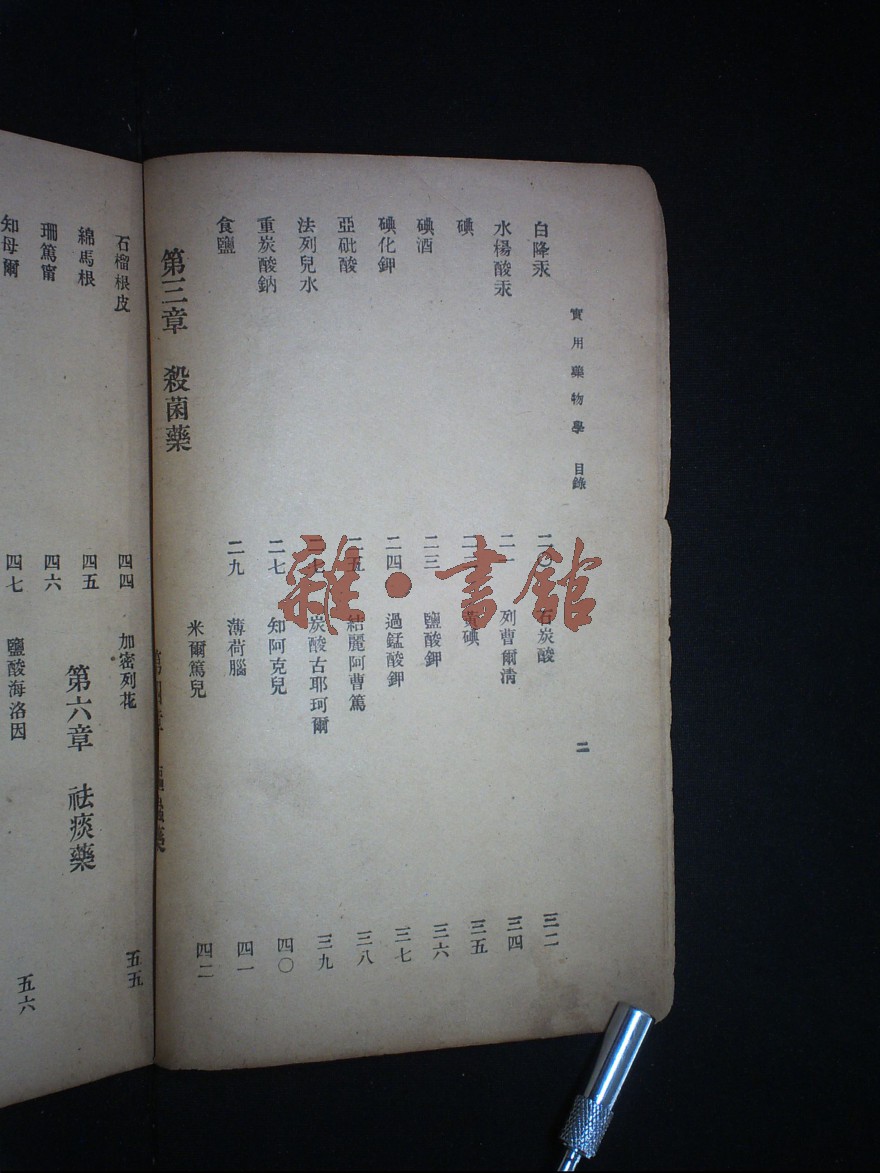 實用藥物學 目錄
二
白降汞 二〇
水楊酸汞 二一
碘
碘酒 二三
碘化鉀 二四
亞砒酸 二五
法列兒水
重炭酸鈉 二七
食鹽 二九
第三章 殺菌藥
石炭酸 三二
列曹爾淸 三四
碘 三五
鹽酸鉀 三六
過錳酸鉀 三七
結麗阿曹篤 三八
炭酸古耶珂爾 三九
知阿克兒 四〇
薄荷腦 四一
米爾篤兒 四二
石榴根皮 四四
綿馬根 四五
珊篤甯 四六
知母爾 四七
加密列花 五五
第六章 祛痰藥
鹽酸海洛因 五六
雜·書館